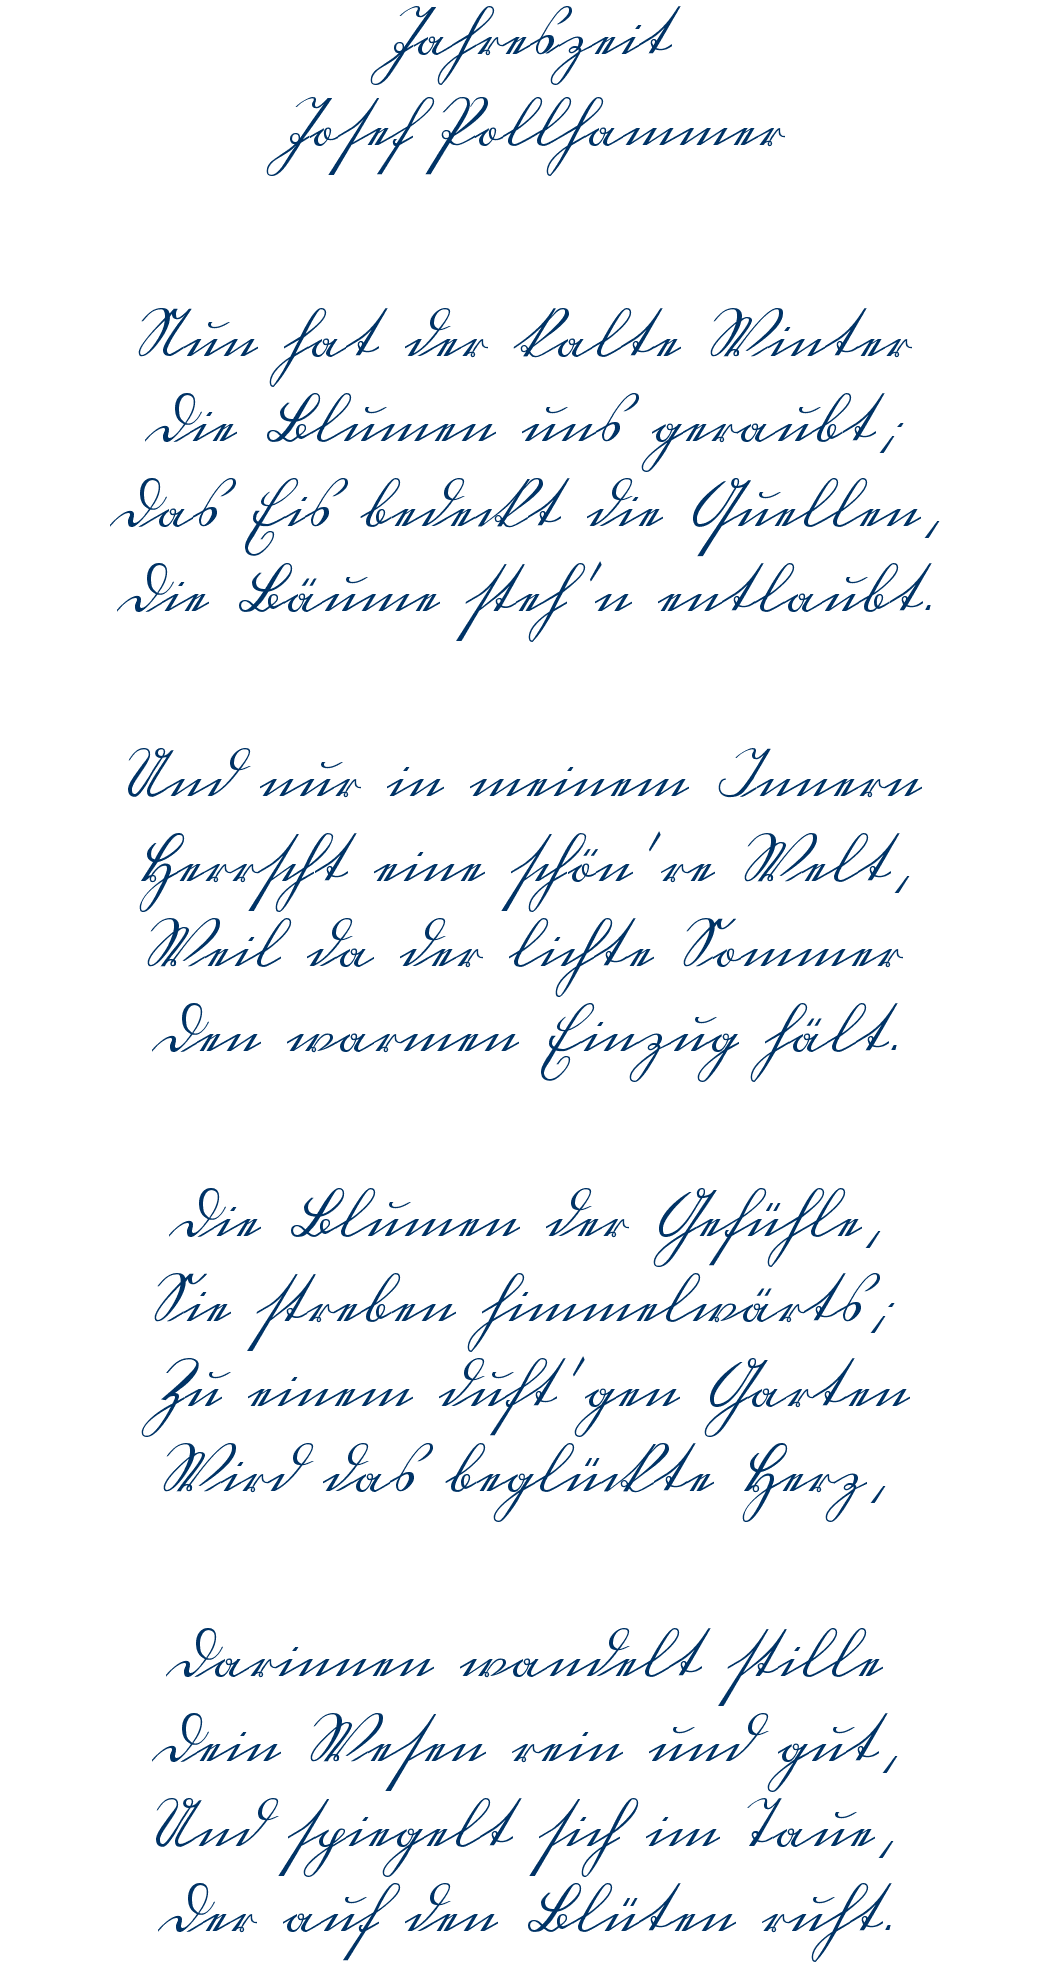 Jahreszeit
Josef Pollhammer
Nun hat der kalte Winter
Die Blumen uns geraubt;
Das Eis bedeckt die Quellen,
Die Bäume steh'n entlaubt.
Und nur in meinem Innern
Herrscht eine schön're Welt,
Weil da der lichte Sommer
Den warmen Einzug hält.
Die Blumen der Gefühle,
Sie streben himmelwärts;
Zu einem duft'gen Garten
Wird das beglückte Herz,
Darinnen wandelt stille
Dein Wesen rein und gut,
Und spiegelt sich im Taue,
Der auf den Blüten ruht.